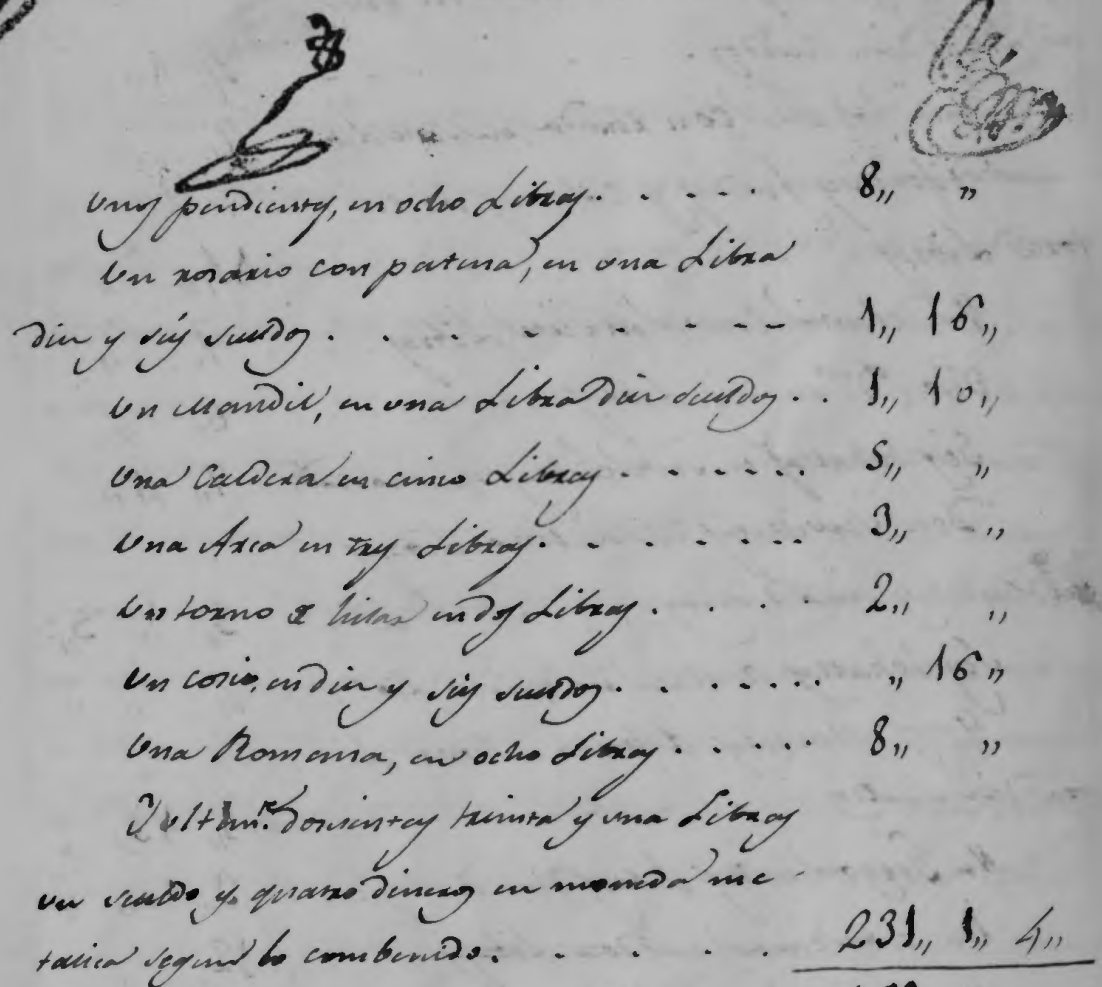 Unos pendientes, en ocho Libras. . . . . . 8,, ,,
Un rosario con patena, en una Libra
diez y seis sueldos . . . . . . . . 1,, 16,,
Un Mandil, en una Libra diez sueldos . . 1,, 10,,
Una Caldera en cinco Libras . . . . . . 5,, ,,
Una Arca en tres Libras. . . . . . . 3,, ,,
Un torno de hilar en dos Libras . . . . 2,, ,,
Un cosio, en diez y seis sueldos . . . . . . ,, 16,,
Una Romana, en ocho Libras . . . . . 8,, ,,
Y ultimte. doscientas treinta y una Libras
un sueldo y quatro dineros en moneda me
talica segun lo combenido. . . . . 231,, 1,, 4,,